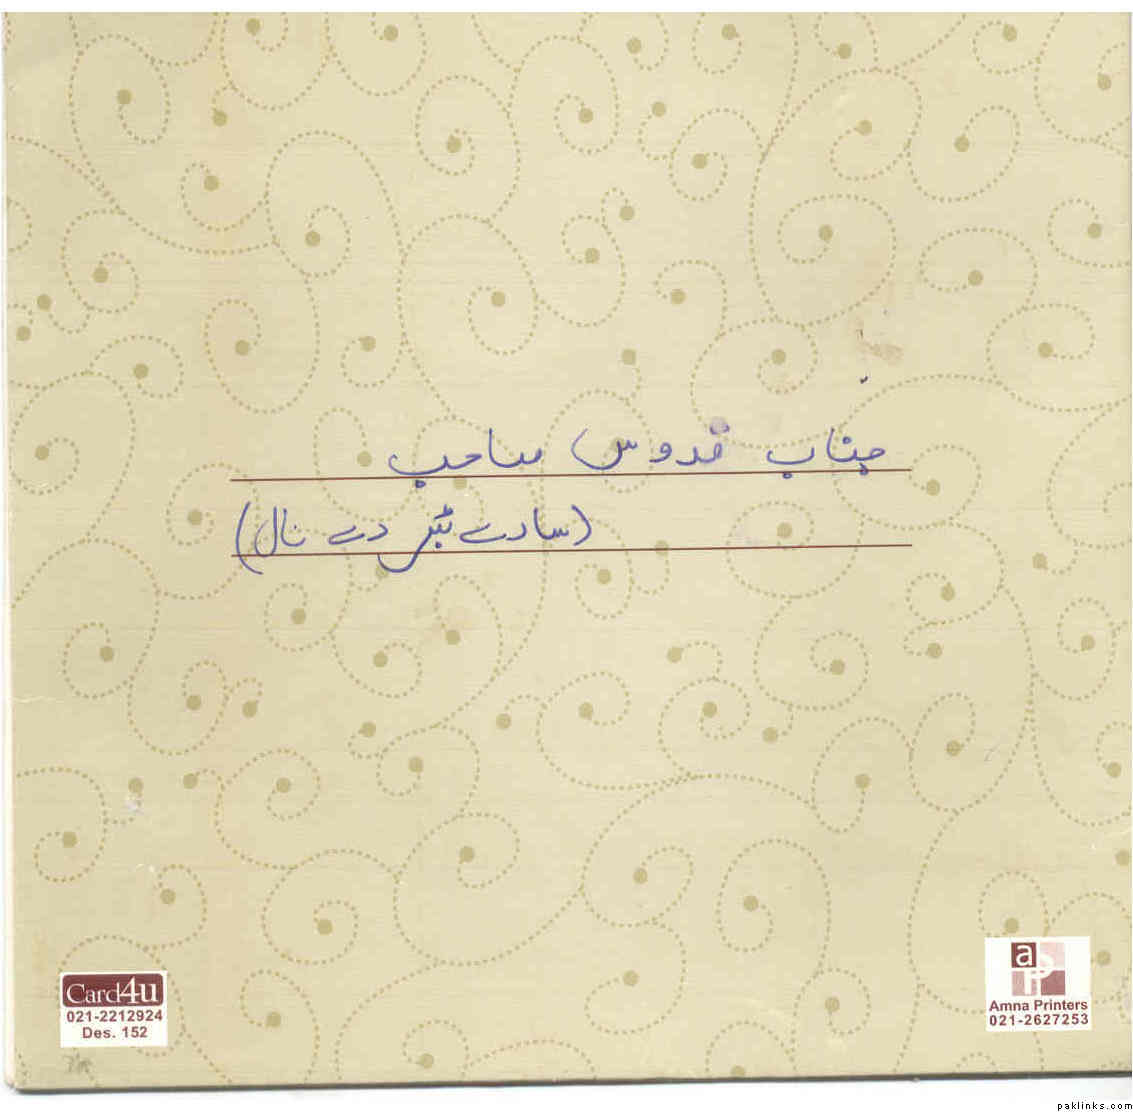 جناب قدوس صاحب
(سارے ٹبر دے نال)
Card4u
021-2212924
Des. 152
asp
Amna Printers
021-2627253
paklinks.com